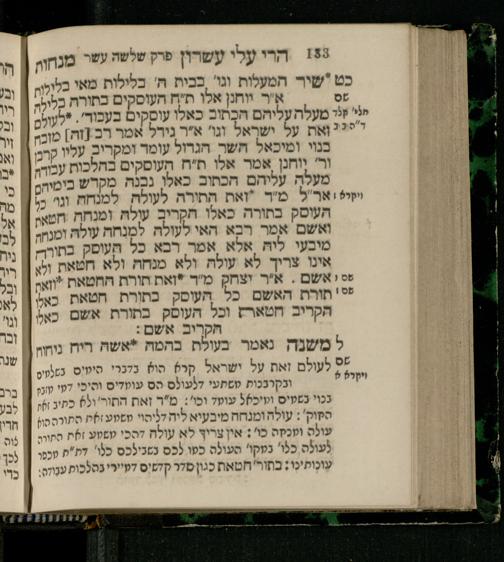 133 הרי עלי עשרון פרק שלשה עשר מנחות
כט *שיר המעלות וגו' בבית ה' בלילות מאי בלילות
שם א"ר יוחנן אלו ת"ח העוסקים בתורה בלילה
תלי' קלד מעלה עליהם הכתוב כאלו עוסקים בעבוד'. *לעולם
ד"ה ב ב זאת על ישראל וגו' א"ר גידל אמר רב [זה] מזבח
בנוי ומיכאל השר הגדול עומד ומקריב עליו קרבן
ור' יוחנן אמר אלו ת"ח העוסקים בהלכות עבודה
מעלה עליהם הכתוב כאלו נבנה מקדש בימיהם
ויקרא ז אר"ל מ"ד *זאת התורה לעולה למנחה וגו' כל
העוסק בתורה כאלו הקריב עולה ומנחה חטאת
ואשם אמר רבא האי לעולה למנחה עולה ומנחה
מיבעי ליה אלא אמר רבא כל העוסק בתורה
אינו צריך לא עולה ולא מנחה ולא חטאת ולא
שם ו אשם . א"ר יצחק מ"ד *זאת תורת החטאת *וזאת
שם ז תורת האשם כל העוסק בתורת חטאת כאלו
הקריב חטאת וכל העוסק בתורת אשם כאלו
הקריב אשם :
ל משנה נאמר בעולת בהמה *אשה ריח ניחוח
שם לעולם זאת על ישראל קרא הוא בדברי הימים בשלמים
ויקרא א ובקרבנות משתעי דלעולם הם עומדים והיכי דמי מזבח
בנוי בשמים ומיכאל עומד וכו': מ"ד זאת התור' ולא כתיב זאת
החוק': עולה ומנחה מיבעיא ליה דליהוי משמע זאת התורה הוא
עולה ומנחה כו': אין צריך לא עולה דהכי משמע זאת התורה
לעולה כלו' במקו' העולה כמו לכם בשבילכם כלו' דת"ת מכפר
עונותיו: בתור' חטאת כגון סדר קדשים דמיירי בהלכות עבודה: